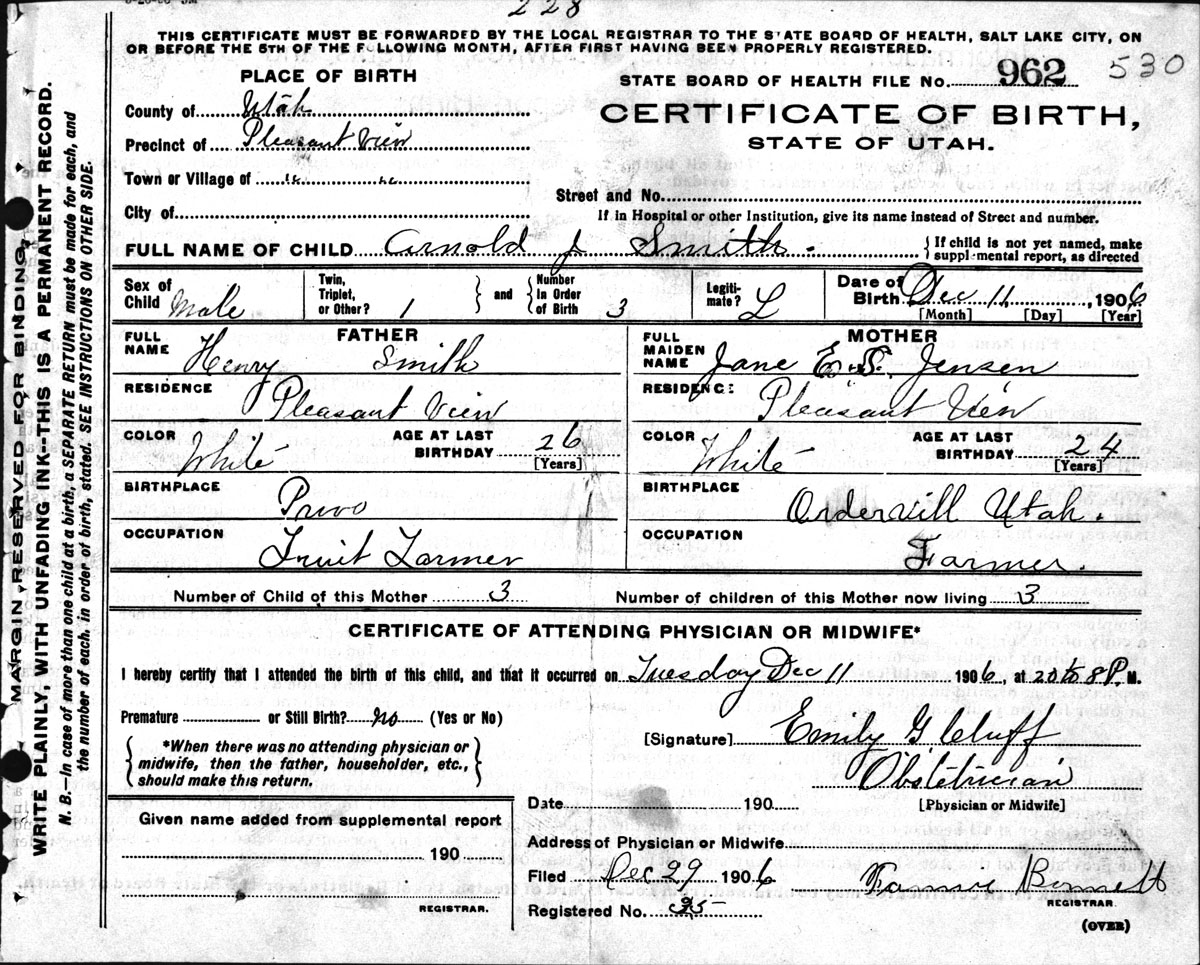 228
THIS CERTIFICATE MUST BE FORWARDED BY THE LOCAL REGISTRAR TO THE STATE BOARD OF HEALTH, SALT LAKE CITY, ON
OR BEFORE THE 5TH OF THE FOLLOWING MONTH, AFTER FIRST HAVING BEEN PROPERLY REGISTERED.
PLACE OF BIRTH
STATE BOARD OF HEALTH FILE No. 962 530
County of Utah
CERTIFICATE OF BIRTH,
Precinct of Pleasant View
STATE OF UTAH.
Town or Village of " "
Street and No.
City of
If in Hospital or other Institution, give its name instead of Street and number.
FULL NAME OF CHILD Arnold J Smith. {If child is not yet named, make
supplemental report, as directed
Sex of Child Male
Twin, Triplet, or Other? 1 } and { Number In Order of Birth 3
Legiti-mate? L
Date of Birth Dec 11, 1906
[Month] [Day] [Year]
FATHER
FULL NAME Henry Smith
RESIDENCE Pleasant View
COLOR White AGE AT LAST BIRTHDAY 26 [Years]
BIRTHPLACE Provo
OCCUPATION Fruit Farmer
MOTHER
FULL MAIDEN NAME Jane E. S. Jensen
RESIDENCE: Pleasant View
COLOR White AGE AT LAST BIRTHDAY 24 [Years]
BIRTHPLACE Ordervill Utah.
OCCUPATION Farmer.
Number of Child of this Mother 3 Number of children of this Mother now living 3
CERTIFICATE OF ATTENDING PHYSICIAN OR MIDWIFE*
I hereby certify that I attended the birth of this child, and that it occurred on Tuesday Dec 11 1906, at 20 to 8 P. M.
Premature or Still Birth? no (Yes or No)
{*When there was no attending physician or
midwife, then the father, householder, etc.,
should make this return.}
[Signature] Emily G Cluff
Obstetrician
[Physician or Midwife]
Date 190
Given name added from supplemental report
190
REGISTRAR.
Address of Physician or Midwife
Filed Dec 29 1906 Fannie Bonnett
REGISTRAR.
Registered No. 35
(OVER)
MARGIN RESERVED FOR BINDING
WRITE PLAINLY, WITH UNFADING INK--THIS IS A PERMANENT RECORD.
N. B.—In case of more than one child at a birth, a SEPARATE RETURN must be made for each, and
the number of each, in order of birth, stated. SEE INSTRUCTIONS ON OTHER SIDE.